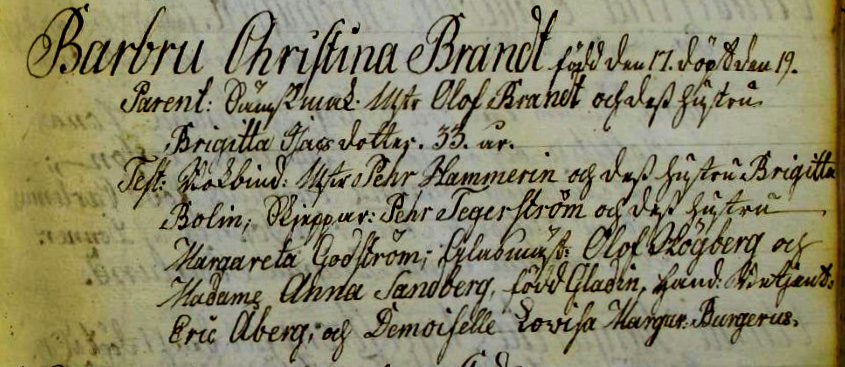 Barbru Christina Brandt född den 17. döpt den 19.
Parent: Sämskmak. Mstr Olof Brandt och deß hustru
Brigitta Isacsdotter. 33. år.
Test: Bokbind: Mstr Pehr Hammerin och deß hustru Brigitta
Bolin; Skjeppar: Pehr Tegerström och deß hustru
Margareta Godström; Olof Högberg och
Madame Anna Sandberg, född Gladin, Hand: Betjent:
Eric Åberg; och Demoiselle Lovisa Margar: Burgerus.